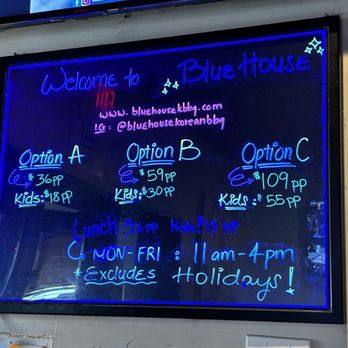 Welcome to Blue House
www.bluehousekbbq.com
IG: @bluehousekoreanbbq
Option A
$36pp
Kids: $18pp
Option B
$59pp
Kids: $30pp
Option C
$109pp
Kids: $55pp
Lunch $26pp Kids $15pp
MON-FRI: 11am-4pm
*Excludes Holidays!